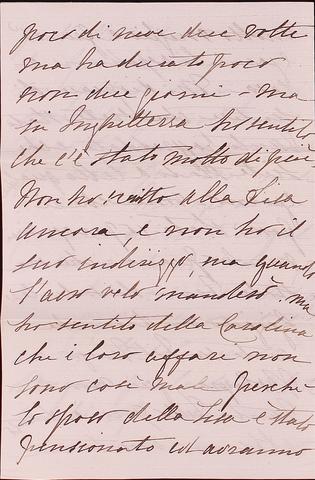 poco di neve due volte
ma ha durato poco
non due giorni - ma
in Inghilterra ho sentito
che c'è stato molto di più.
Non ho scritto alla Lisa
ancora, e non ho il
suo indirizzo, ma quando
l'avrò velo manderò. ma
ho sentito della Carolina
che i loro affare non
sono cosi male perchè
lo sposo della Lisa è stato
pensionato ed avranno